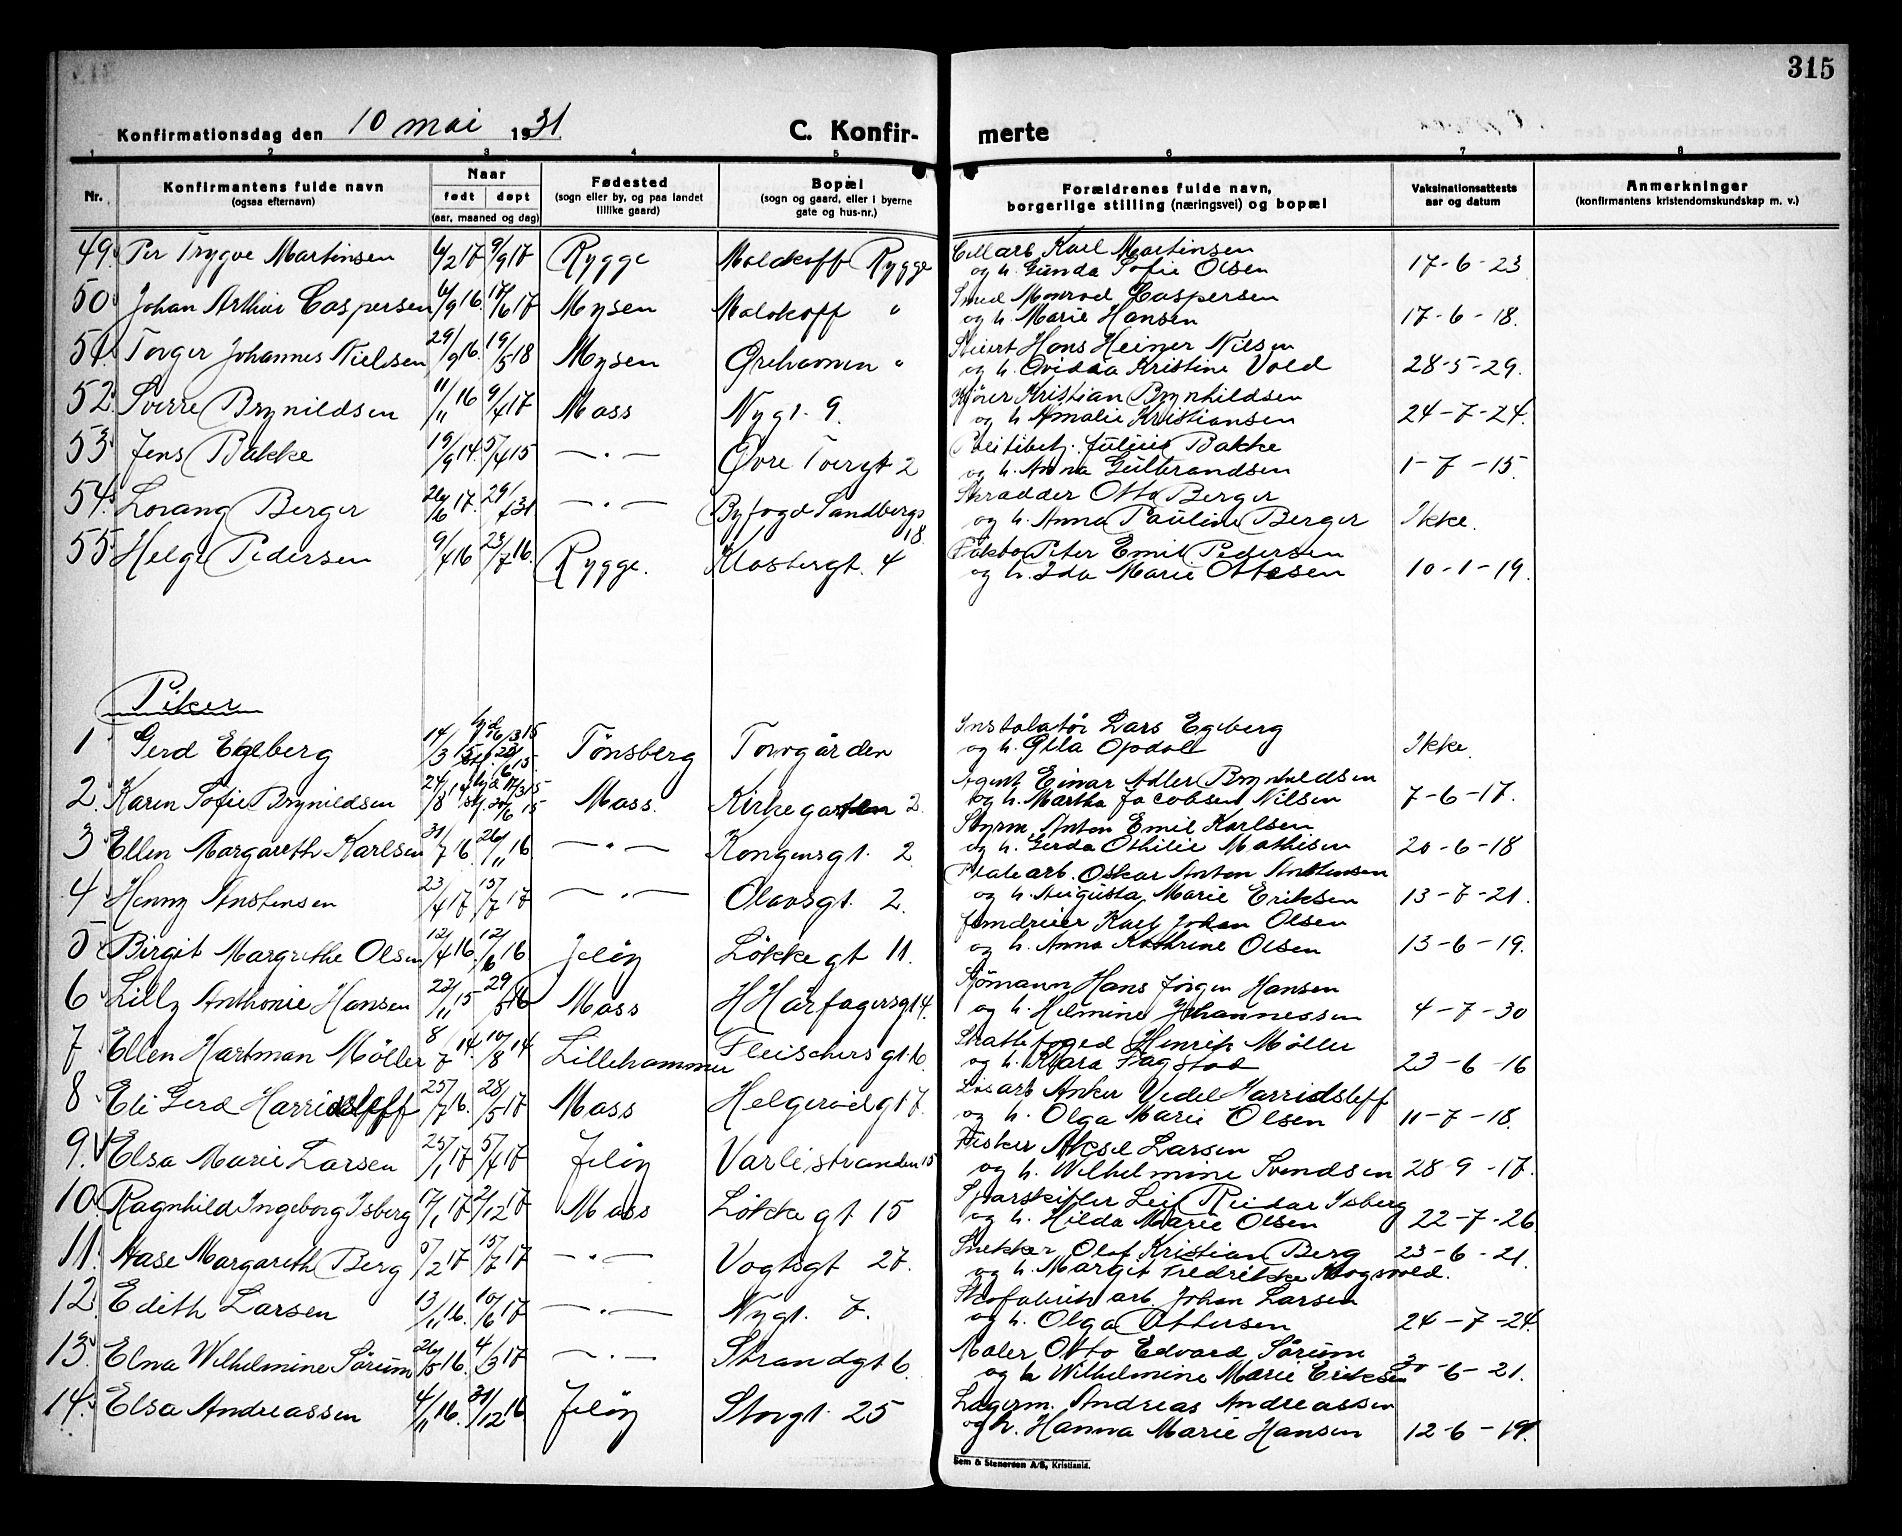 315
Konfirmationsdag den 10 mai 1931
C. Konfir- merte
1 2 3 4 5 6 7 8
Nr.
Konfirmantens fulde navn
(ogsaa efternavn)
Naar
født døpt
(aar, maaned og dag)
Fødested
(sogn eller by, og paa landet
tillike gaard)
Bopæl
(sogn og gaard, eller i byerne
gate og hus-nr.)
Forældrenes fulde navn,
borgerlige stilling (næringsvei) og bopæl
Vaksinationsattests
aar og datum
Anmerkninger
(konfirmantens kristendomskundskap m. v.)
49. Per Trygve Martinsen 6/2 17 9/9 17 Rygge Malakoff Rygge Cell arb Karl Martinsen
og h. Gunda Sofie Olsen 17-6-23
50 Johan Arthur Caspersen 6/9 16. 17/6 17 Mysen Malakoff " Smed Monrad Caspersen
og h. Marie Hansen 17-6-18.
51. Torger Johannes Nielsen 29/9 16. 19/5 18 Mysen Grehavnen " Hans Heiner Nilsen
og h. Ovidia Kristine Vold 28-5-29.
52. Sverre Brynildsen 11/11 16 9/4 17 Moss Nygt. 9. Kjører Kristian Brynhildsen
og h. Amalie Kristiansen 24-7-24.
53. Jens Bakke 19/9 14. 5/4 15 —"— Øvre Tvergt 2 Politibetj. Julius Bakke
og h. Anna Gulbrandsen 1-7-15
54. Lorang Berger 26/6 17. 29/4 31 —"— Byfogd Sandbergs
18. Skrædder Otto Berger
og h. Anna Pauline Berger Ikke.
55. Helge Pedersen 9/4 16 23/7 16. Rygge. Klostergt. 4 Peter Emil Pedersen
og h. Ida Marie Ottesen 10-1-19.
Piker
1 Gerd Egeberg 14/3 15 Tønsberg Torvgården Instalatør Lars Egeberg
og h. Opdal Ikke.
2. Karen Sofie Brynildsen 24/8 14 Moss. Kirkegaten 2. Agent Einar Adler Brynhildsen
og h. Martha Jacobsen Nilsen 7-6-17.
3 Ellen Margareth Karlsen 31/7 16. 26/11 16. —"— Kongensgt. 2 Styrm. Anton Emil Karlsen
og h. Gerda Othilie Mathisen 20-6-18
4 Henny Anstensen 23/4 17 15/7 17 —"— Olavsgt. 2. Platearb. Oskar Anton Anstensen
og h. Augusta Marie Eriksen 13-7-21.
5 Birgit Margrethe Olsen 12/4 16. 12/6 16 Jeløy Løkkegt 11. Jerndreier Karl Johan Olsen
og h. Anna Kathrine Olsen 13-6-19.
6 Lilly Anthonie Hansen 22/11 15 29/5 16 Moss H Hårfagersgt 4. Sjømann Hans Jørgen Hansen
og h. Helmine Johannessen 4-7-30
7 Ellen Hartman Møller 8/7 14. 10/8 14 Lillehammer Fleischersgt. 6 Skattefoged Henrik Møller
og h. Klara Flagstad 23-6-16
8 Eli Gerd Harridsleff 25/7 16. 28/5 17 Moss Helgerødgt 7. Løsarb Anker Vedel Harridsleff
og h. Olga Marie Olsen 11-7-18.
9. Elsa Marie Larsen 25/1 17 5/4 17 Jeløy Varlistranden 15 Fisker Aksel Larsen
og h. Wilhelmine Svendsen 28-9-17.
10 Ragnhild Ingeborg Isberg 17/1 17. 2/12 17 Moss Løkkegt 15 Sparskifter Leif Reidar Isberg
og h. Hilda Marie Olsen 22-7-26
11. Aase Margareth Berg 5/2 17 15/7 17 —"— Vogtsgt 27. Snekker Olaf Kristian Berg 23-6-21.
og h. Margit Fredrikke
12. Edith Larsen 13/11 16. 10/6 17 —"— Nygt. 7. Skofabrik arb Johan Larsen
og h. Olga Ottersen 24-7-24.
13. Elna Wilhelmine Sørum 26/5 16. 4/3 17 —"— Strandgt 6. Maler Otto Edvard Sørum
og h Wilhelmine Marie Eriksen 30-6-21.
14. Elsa Andreassen 4/11 16. 31/12 16 Jeløy Storgt. 25 Lagerm. Andreas Andreassen
og h. Hanna Marie Hansen 12-6-19.
Sem & Stenersen A/S, Kristiania.